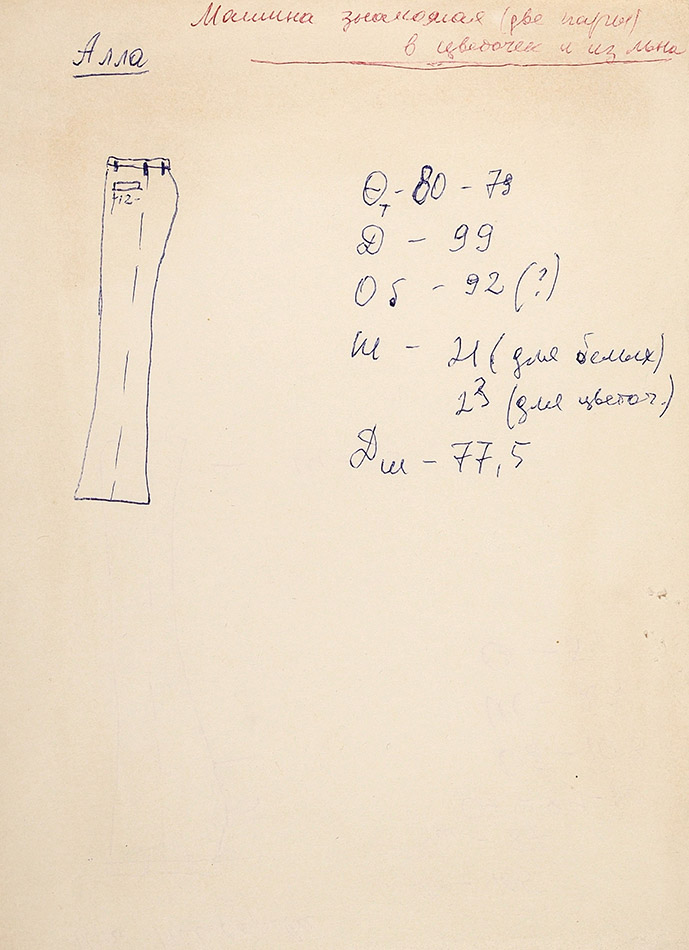 Машина знакомая (две пары)
в цветочек и из льна
Алла
-12-
От - 80 - 79
Д - 99
Об - 92 (?)
Ш - 21 (для белых)
23 (для цветоч.)
Дш - 77,5